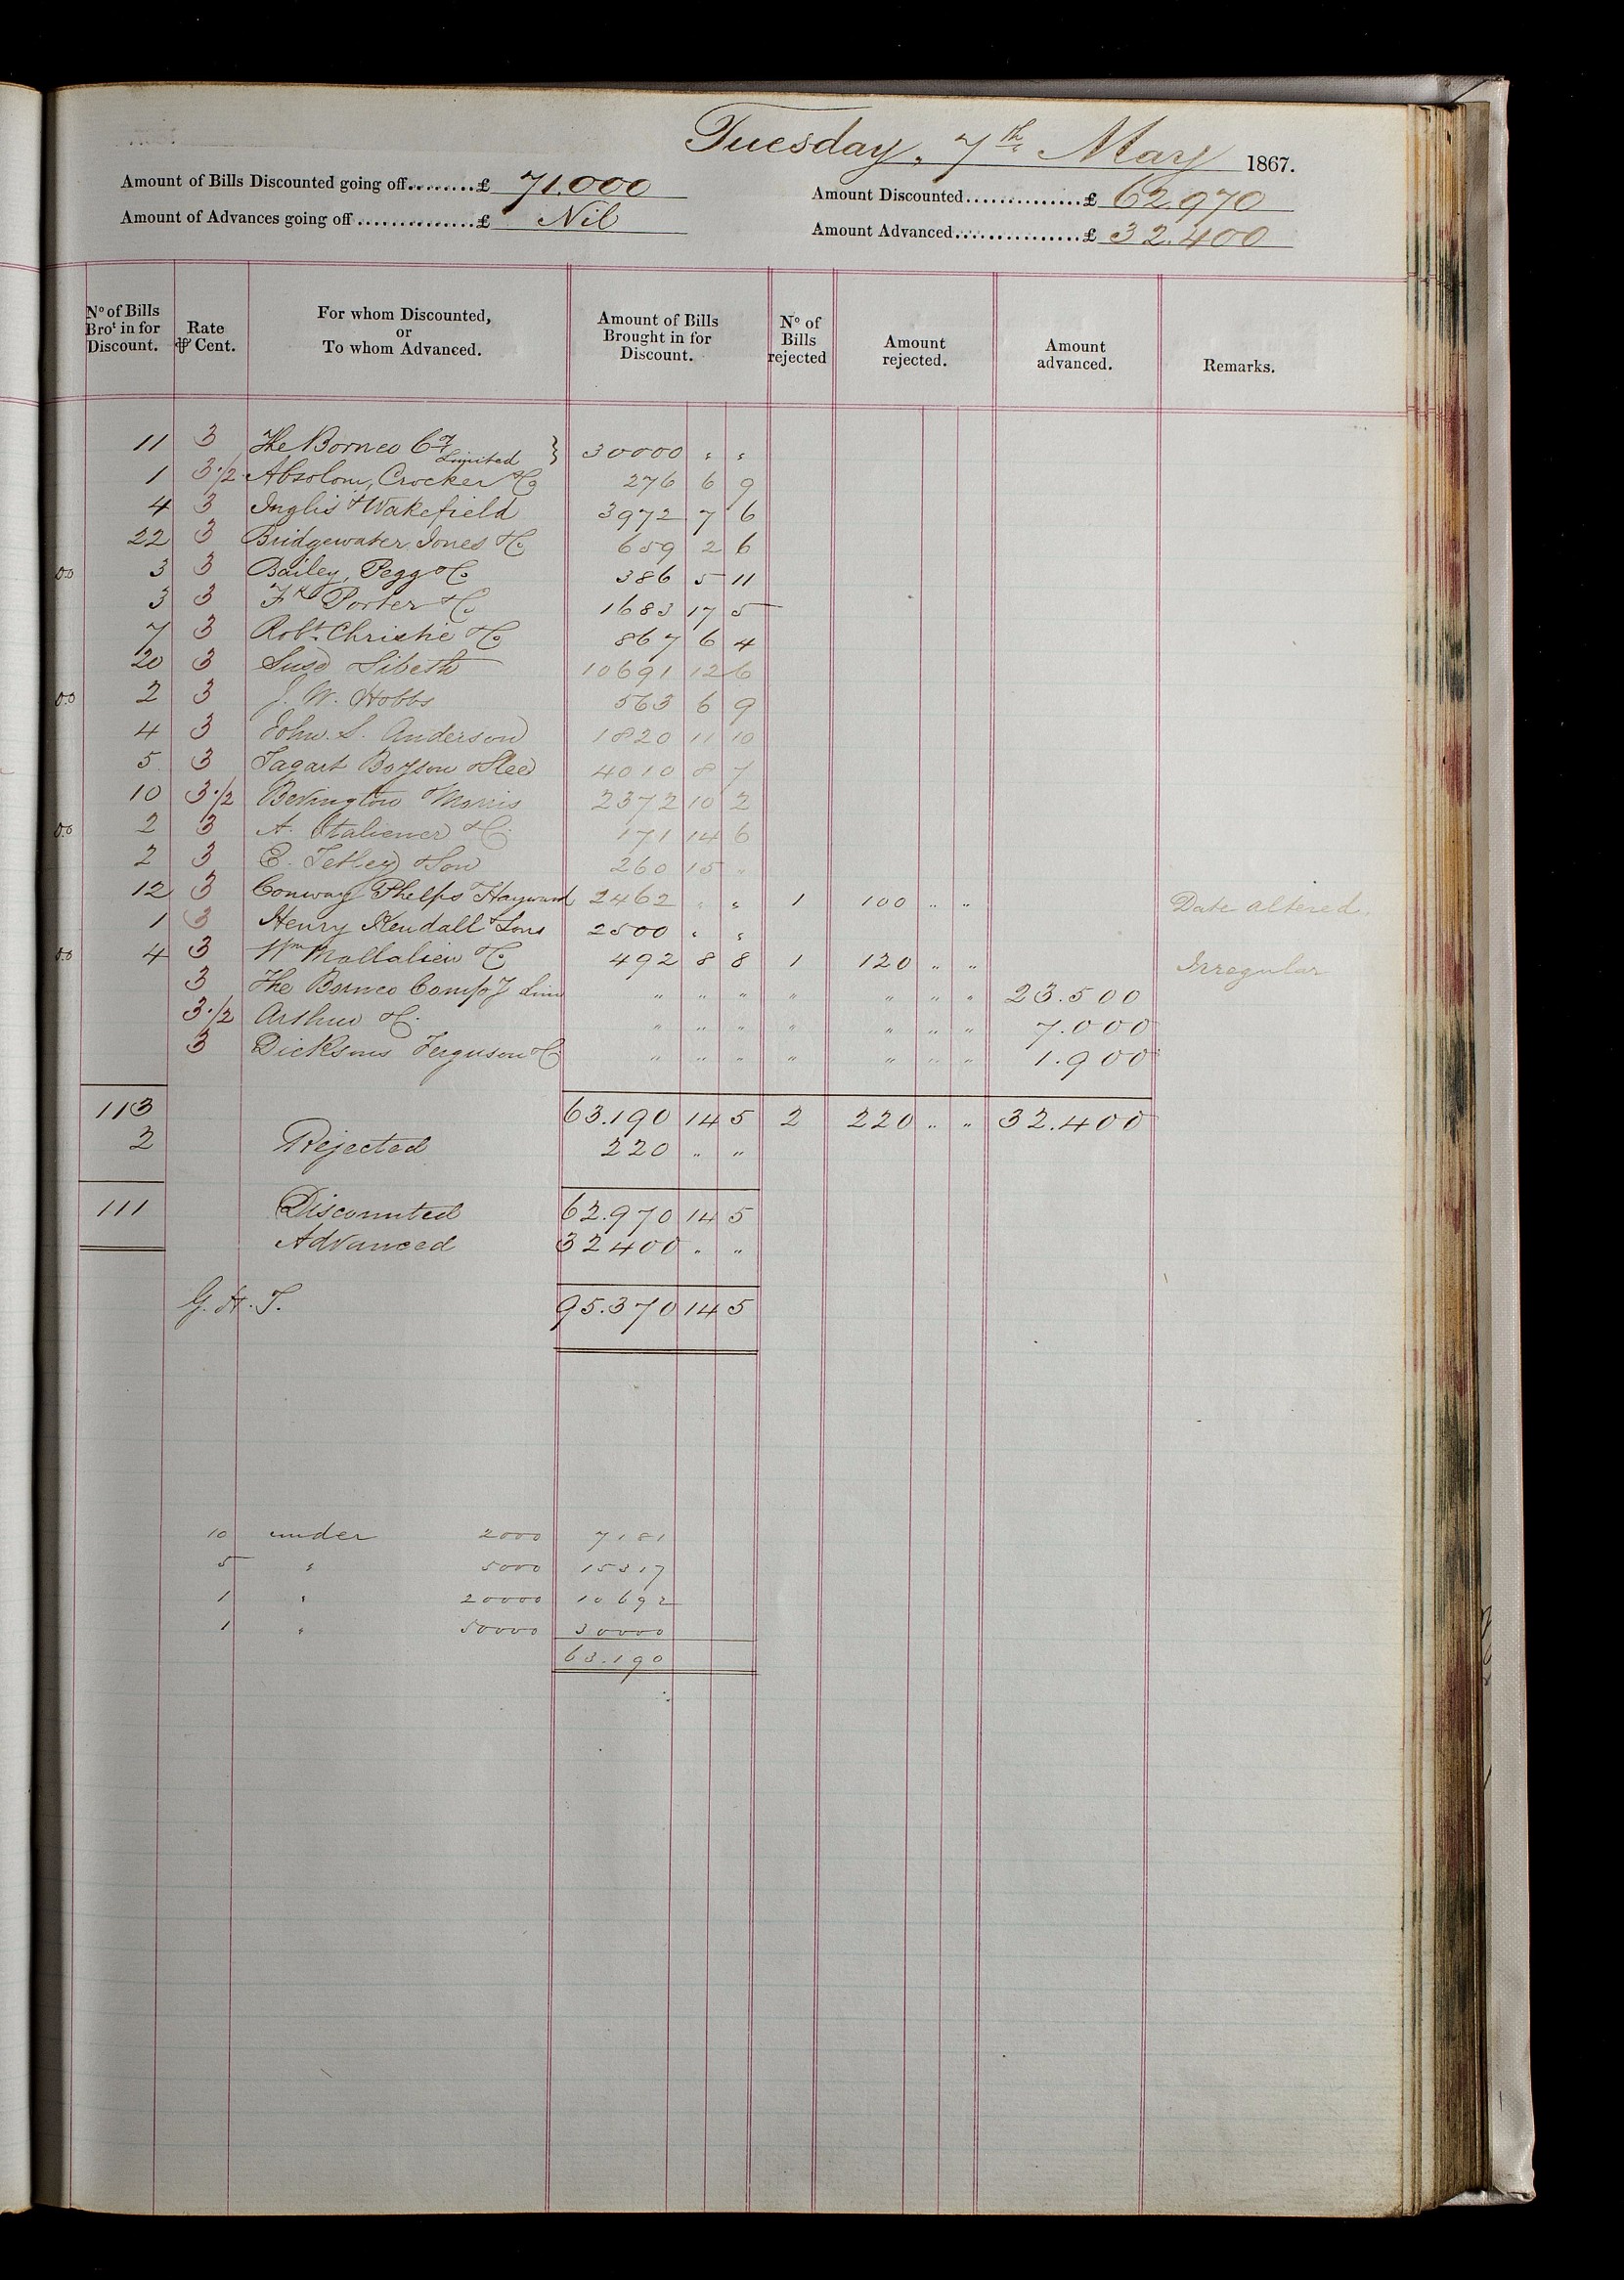 Tuesday, 7th May 1867.
Amount of Bills Discounted going off........£ 71.000
Amount Discounted...............£ 62.970
Amount of Advances going off...............£ Nil
Amount Advanced................£ 32.400
No of Bills Brot in for Discount. Rate ⅌ Cent. For whom Discounted, or To whom Advanced. Amount of Bills Brought in for Discount. No of Bills rejected Amount rejected. Amount advanced. Remarks.
11 3 The Borneo Cy Limited } 30000 " "
1 3 1/2 Absolom, Crocker & Co 276 6 9
4 3 Inglis & Wakefield 3972 7 6
22 3 Bridgewater Jones & Co 659 2 6
3 3 Bailey, Pegg & Co 386 5 11
3 3 Fk Porter & Co 1683 17 5
7 3 Robt. Christie & Co 867 6 4
20 3 Susé & Sibeth 10691 12 6
2 3 J. W. Hobbs 563 6 9
4 3 John. S. Anderson 1820 11 10
5 3 Tagart Boyson & Slee 4010 8 7
10 3 1/2 Bevington & Morris 2372 10 2
2 3 A. Italiener & Co 171 14 6
2 3 E. Tetley & Son 260 15 "
12 3 Conway Phelps & Hayward 2462 " " 1 100 " " Date altered.
1 3 Henry Kendall & Sons 2500 " "
4 3 Wm Mallalieu & Co 492 8 8 1 120 " " Irregular
3 The Borneo Compy Lim " " " " " " " 23.500
3 1/2 Arthur & Co. " " " " " " " 7.000
3 Dicksons Ferguson & Co " " " " " " " 1.900
113 63.190 14 5 2 220 " " 32.400
2 Rejected 220 " "
111 Discounted 62.970 14 5
Advanced 32400 " "
G. H. T. 95.370 14 5
10 under 2000 7181
5 " 5000 15317
1 " 20000 10692
1 " 50000 30000
63.190